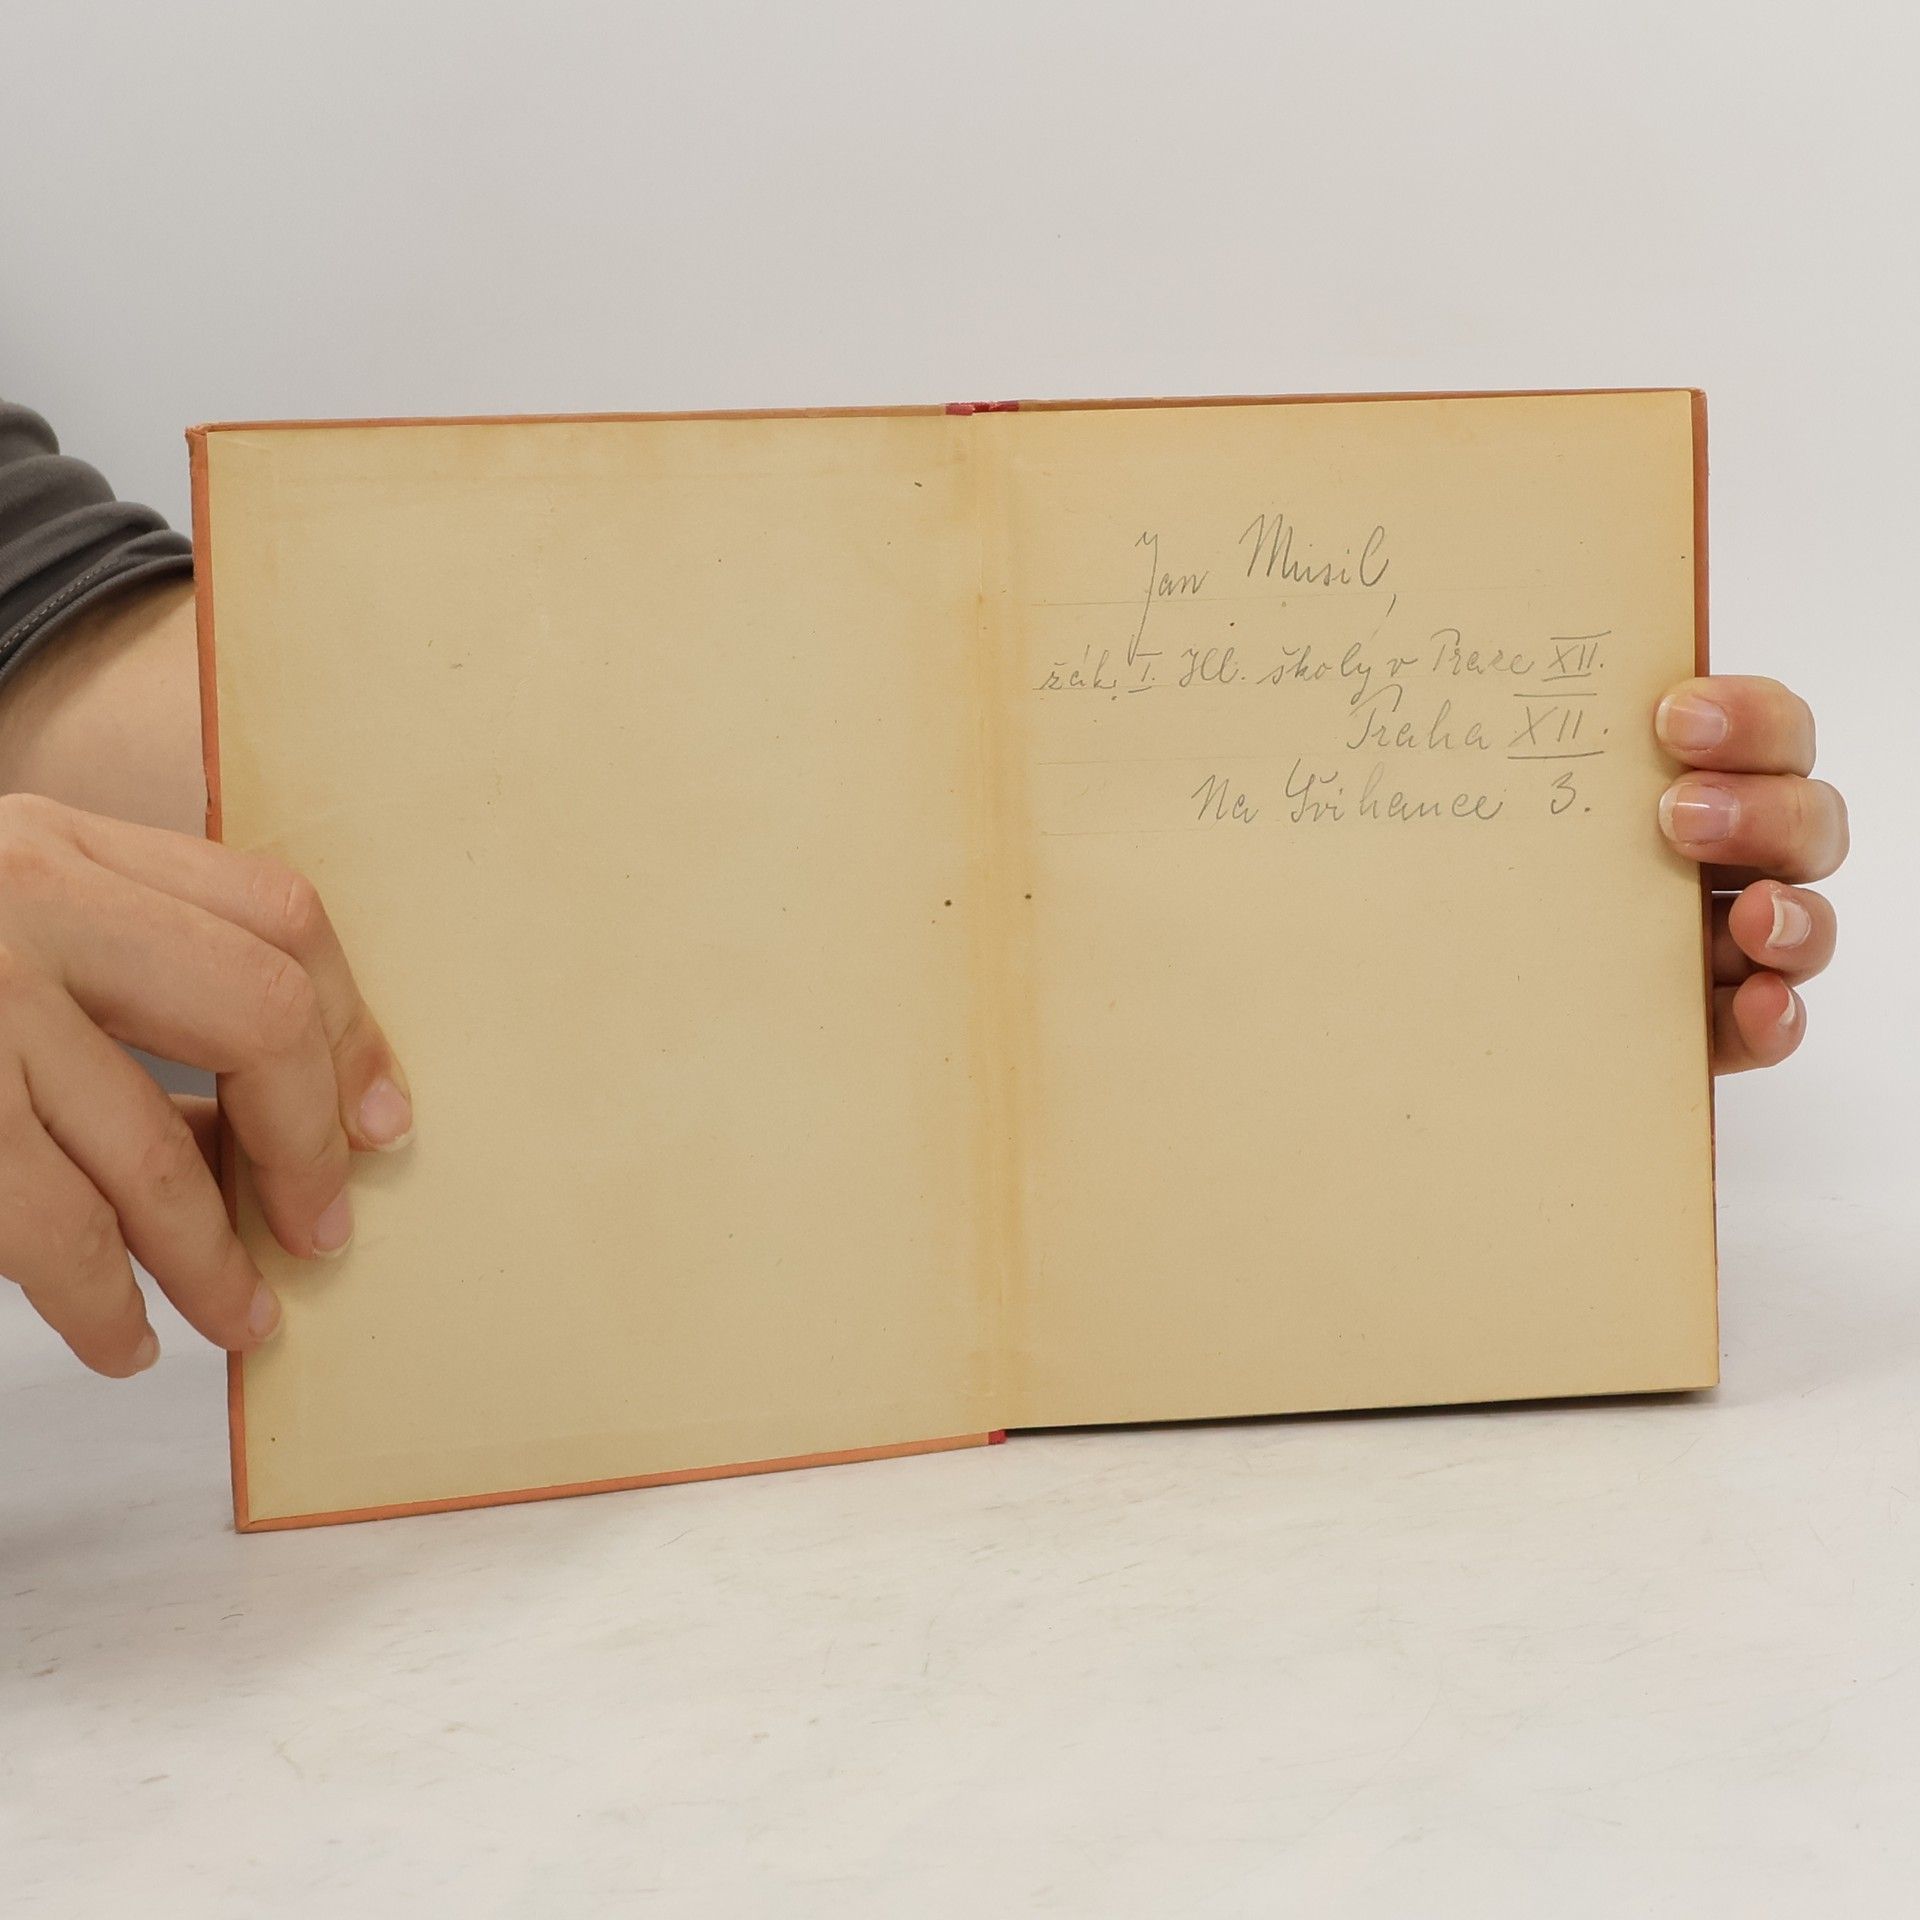 Jan Musil,
žák I. Hl. školy v Praze XII.
Praha XII.
Na Švihance 3.